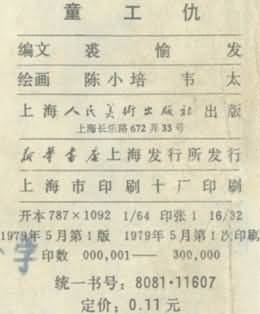 童工仇
编文 裘愉发
绘画 陈小培 韦太
上海人民美術出版社出版
上海长乐路672弄33号
新华書店上海发行所发行
上海市印刷十厂印刷
开本787×1092 1/64 印张1 16/32
1979年5月第1版 1979年5月第1次印刷
印数 000,001— 300,000
统一书号：8081·11607
定价：0.11元